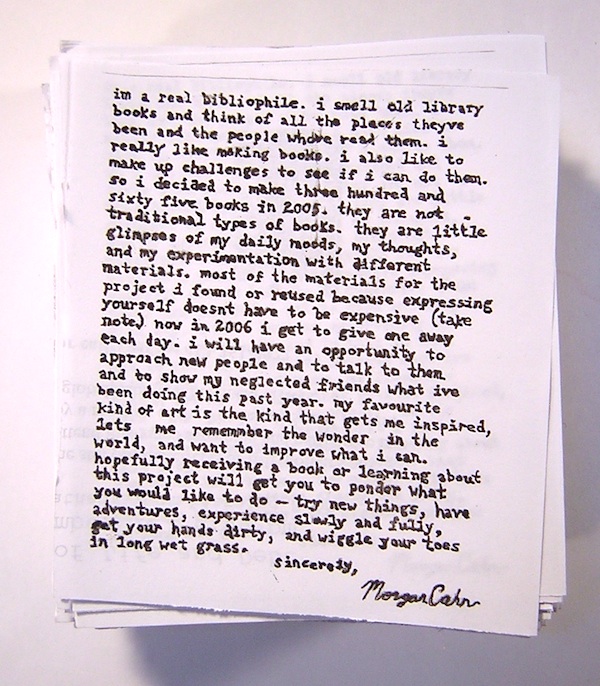 im a real bibliophile. i smell old library
books and think of all the places theyve
been and the people whove read them. i
really like making books. i also like to
make up challenges to see if i can do them.
so i decided to make three hundred and
sixty five books in 2005. they are not
traditional types of books. they are little
glimpses of my daily moods, my thoughts,
and my experimentation with different
materials. most of the materials for the
project i found or reused because expressing
yourself doesnt have to be expensive (take
note) now in 2006 i get to give one away
each day. i will have an opportunity to
approach new people and to talk to them
and to show my neglected friends what ive
been doing this past year. my favourite
kind of art is the kind that gets me inspired,
lets me rememnber the wonder in the
world, and want to improve what i can.
hopefully receiving a book or learning about
this project will get you to ponder what
you would like to do - try new things, have
adventures, experience slowly and fully,
get your hands dirty, and wiggle your toes
in long wet grass.
sincerely,
Morgan Cahn